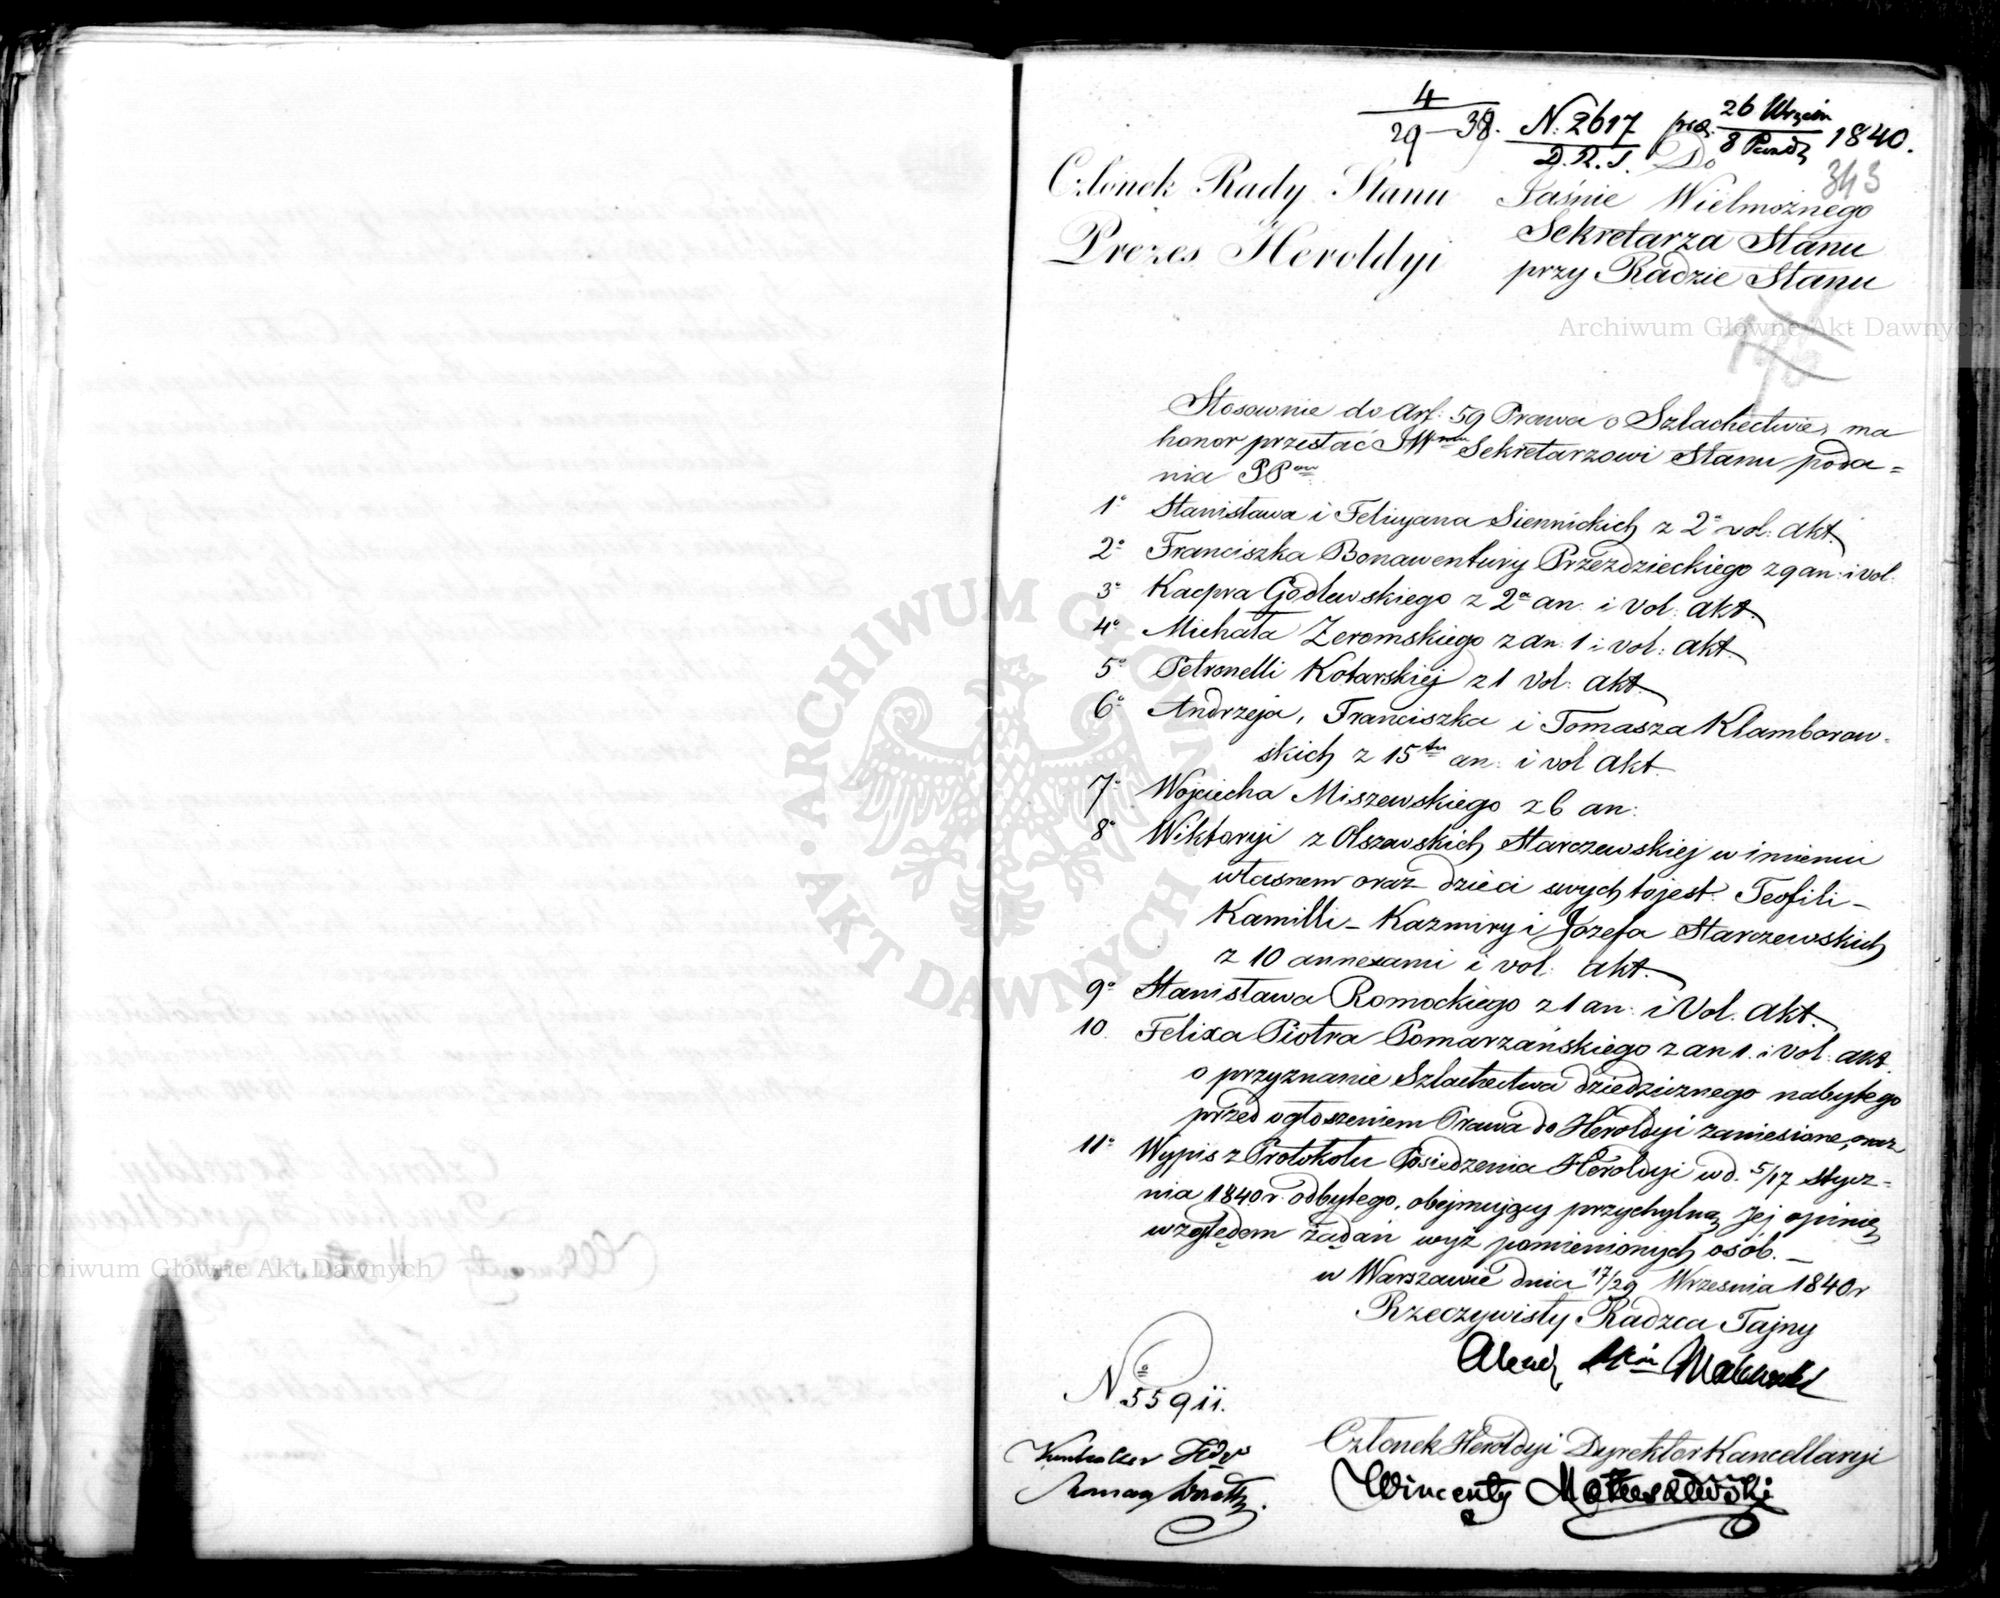 4
29 — 38.
N. 2617
D. R. S.
26 Wrześn
8 Paźdz
1840.
343
Członek Rady Stanu
Prezes Heroldyi
Do
Jaśnie Wielmożnego
Sekretarza Stanu
przy Radzie Stanu
Stosownie do Art: 59 Prawa o Szlachectwie, ma
honor przesłać JWmu Sekretarzowi Stanu poda=
nia PP
1° Stanisława i Felicyana Siennickich z 2a vol: akt.
2° Franciszka Bonawentury Przezdzieckiego z 9 an: i vol:
3° Kacpra Godlewskiego z 2a an: i vol: akt.
4° Michała Zeromskiego z an: 1 i vol: akt.
5° Petronelli Kotarskiej z 1 vol: akt.
6° Andrzeja, Franciszka i Tomasza Klamborow=
skich z 15tu an: i vol akt.
7° Wojciecha Miszewskiego z 6 an:
8° Wiktoryi z Olszewskich Starczewskiej w imieniu
własnem oraz dzieci swych to jest: Teofili –
Kamilli – Kazmiry i Józefa Starczewskich
z 10 annexami i vol: akt.
9° Stanisława Romockiego z 1 an: i Vol. akt.
10. Felixa Piotra Pomarzańskiego z an 1. i vol: akt.
o przyznanie Szlachectwa dziedzicznego nabytego
przed ogłoszeniem Prawa do Heroldyi zaniesione, oraz
11° Wypis z Protokołu Posiedzenia Heroldyi w d. 5/17 Stycz=
nia 1840 r. odbytego, obejmujący przychylną Jej opinię
względem żądań wyż pomienionych osób. —
w Warszawie dnia 17/29 Września 1840 r
Rzeczywisty Radzca Tajny
No 55911.
Członek Heroldyi Dyrektor Kancellaryi
Wincenty Matuszewski
ARCHIWUM GŁÓWNE AKT DAWNYCH
Archiwum Główne Akt Dawnych
Archiwum Główne Akt Dawnych